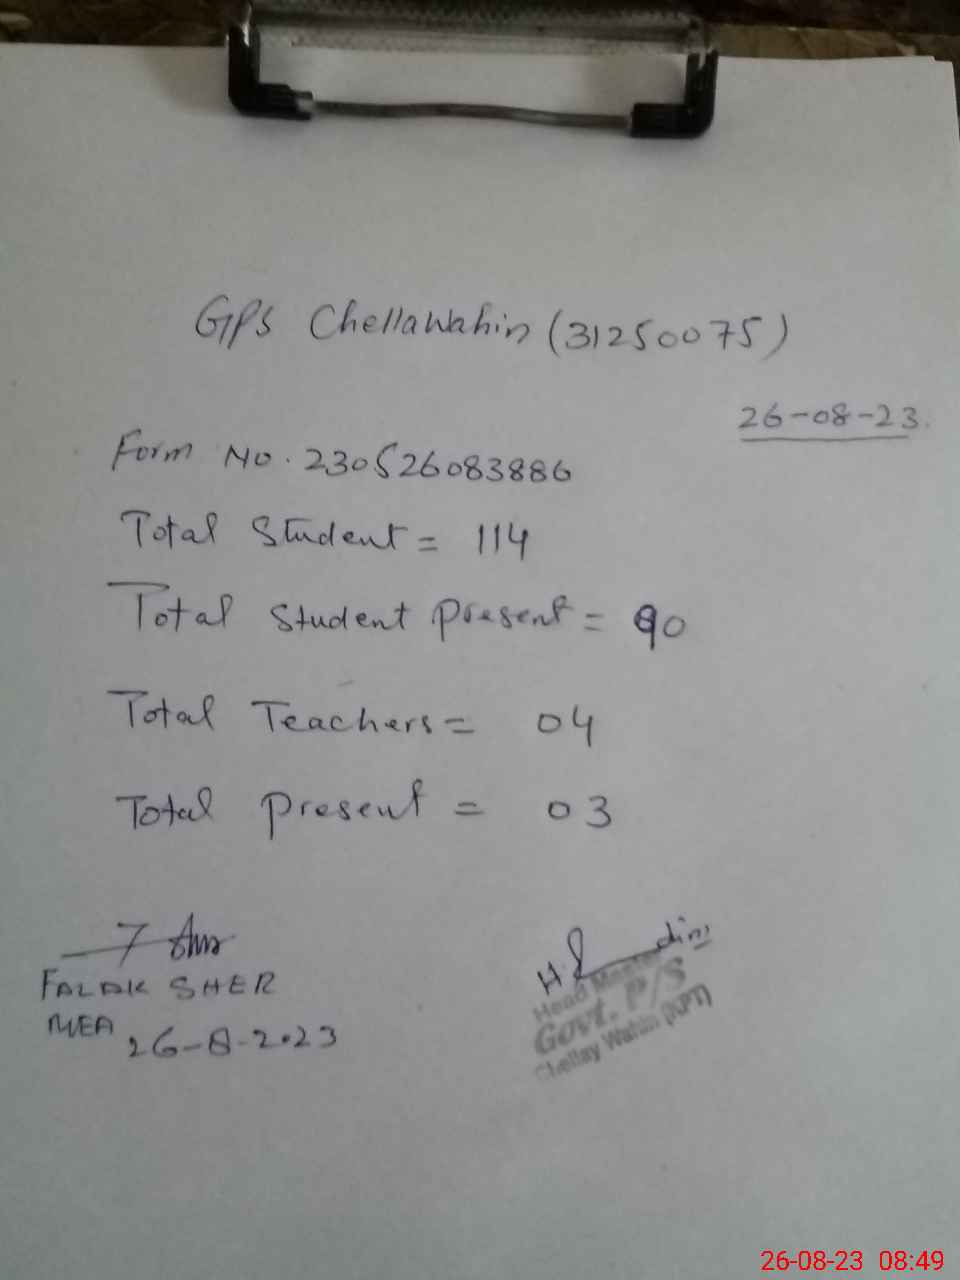 GPS Chellawahin (31250075)
26-08-23.
Form No. 230526083886
Total Student = 114
Total Student present = 90
Total Teachers = 04
Total present = 03
FALAK SHER
MEA
26-8-2023
Head Master
Govt. P/S
Chellay Wahin (KPT)
26-08-23 08:49